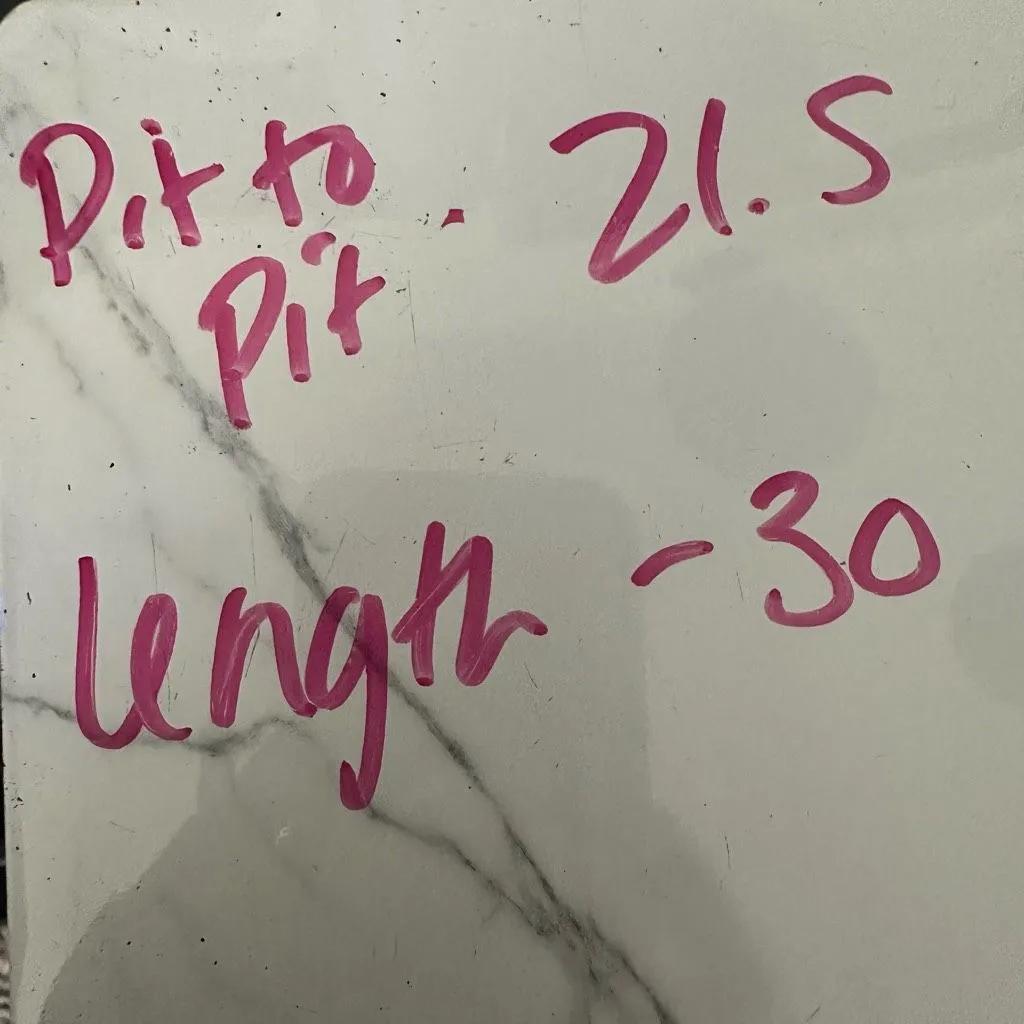 Pit to - 21.5
Pit
length - 30